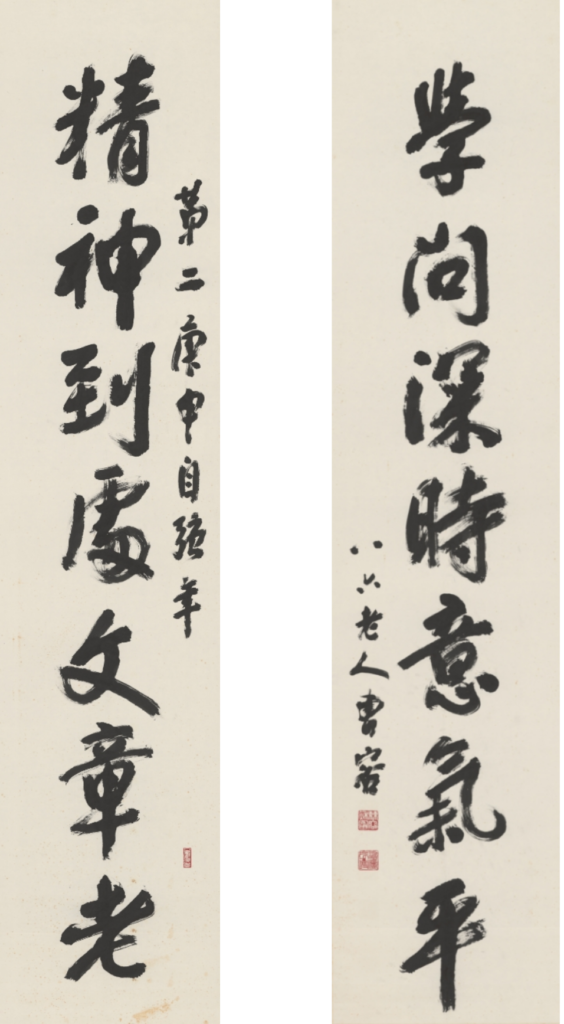 第二庚申自強年
精神到處文章老
學問深時意氣平
八六老人曹容